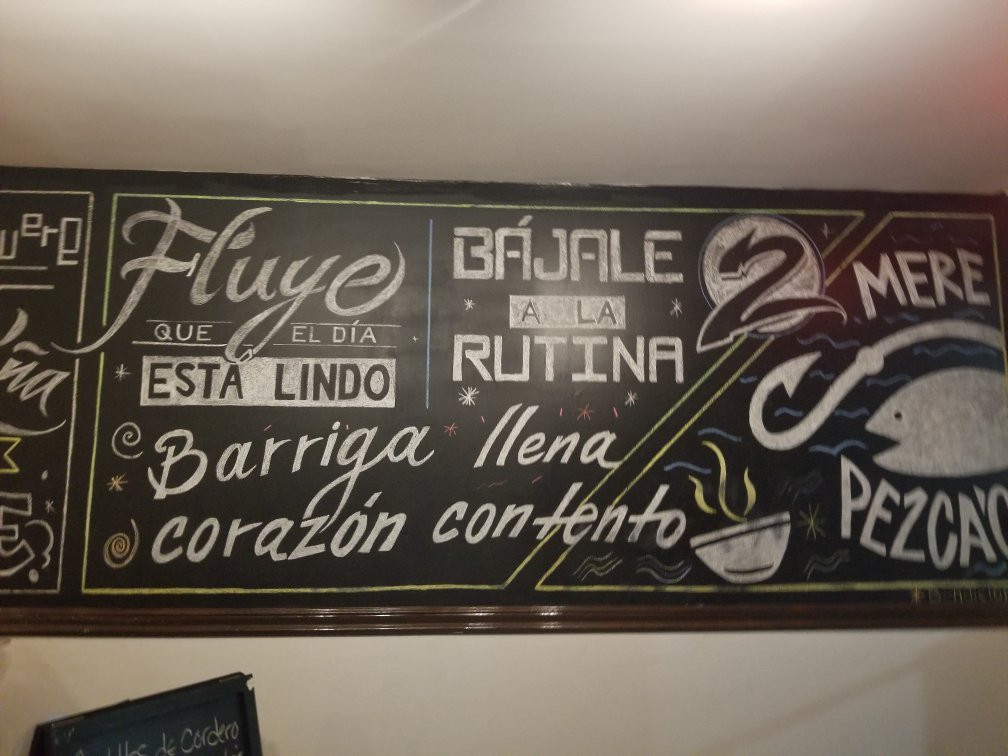 Fluye
QUE EL DÍA
ESTÁ LINDO
BÁJALE
A LA
RUTINA
Barriga llena
corazón contento
MERE
PEZCA'O
de Cordero